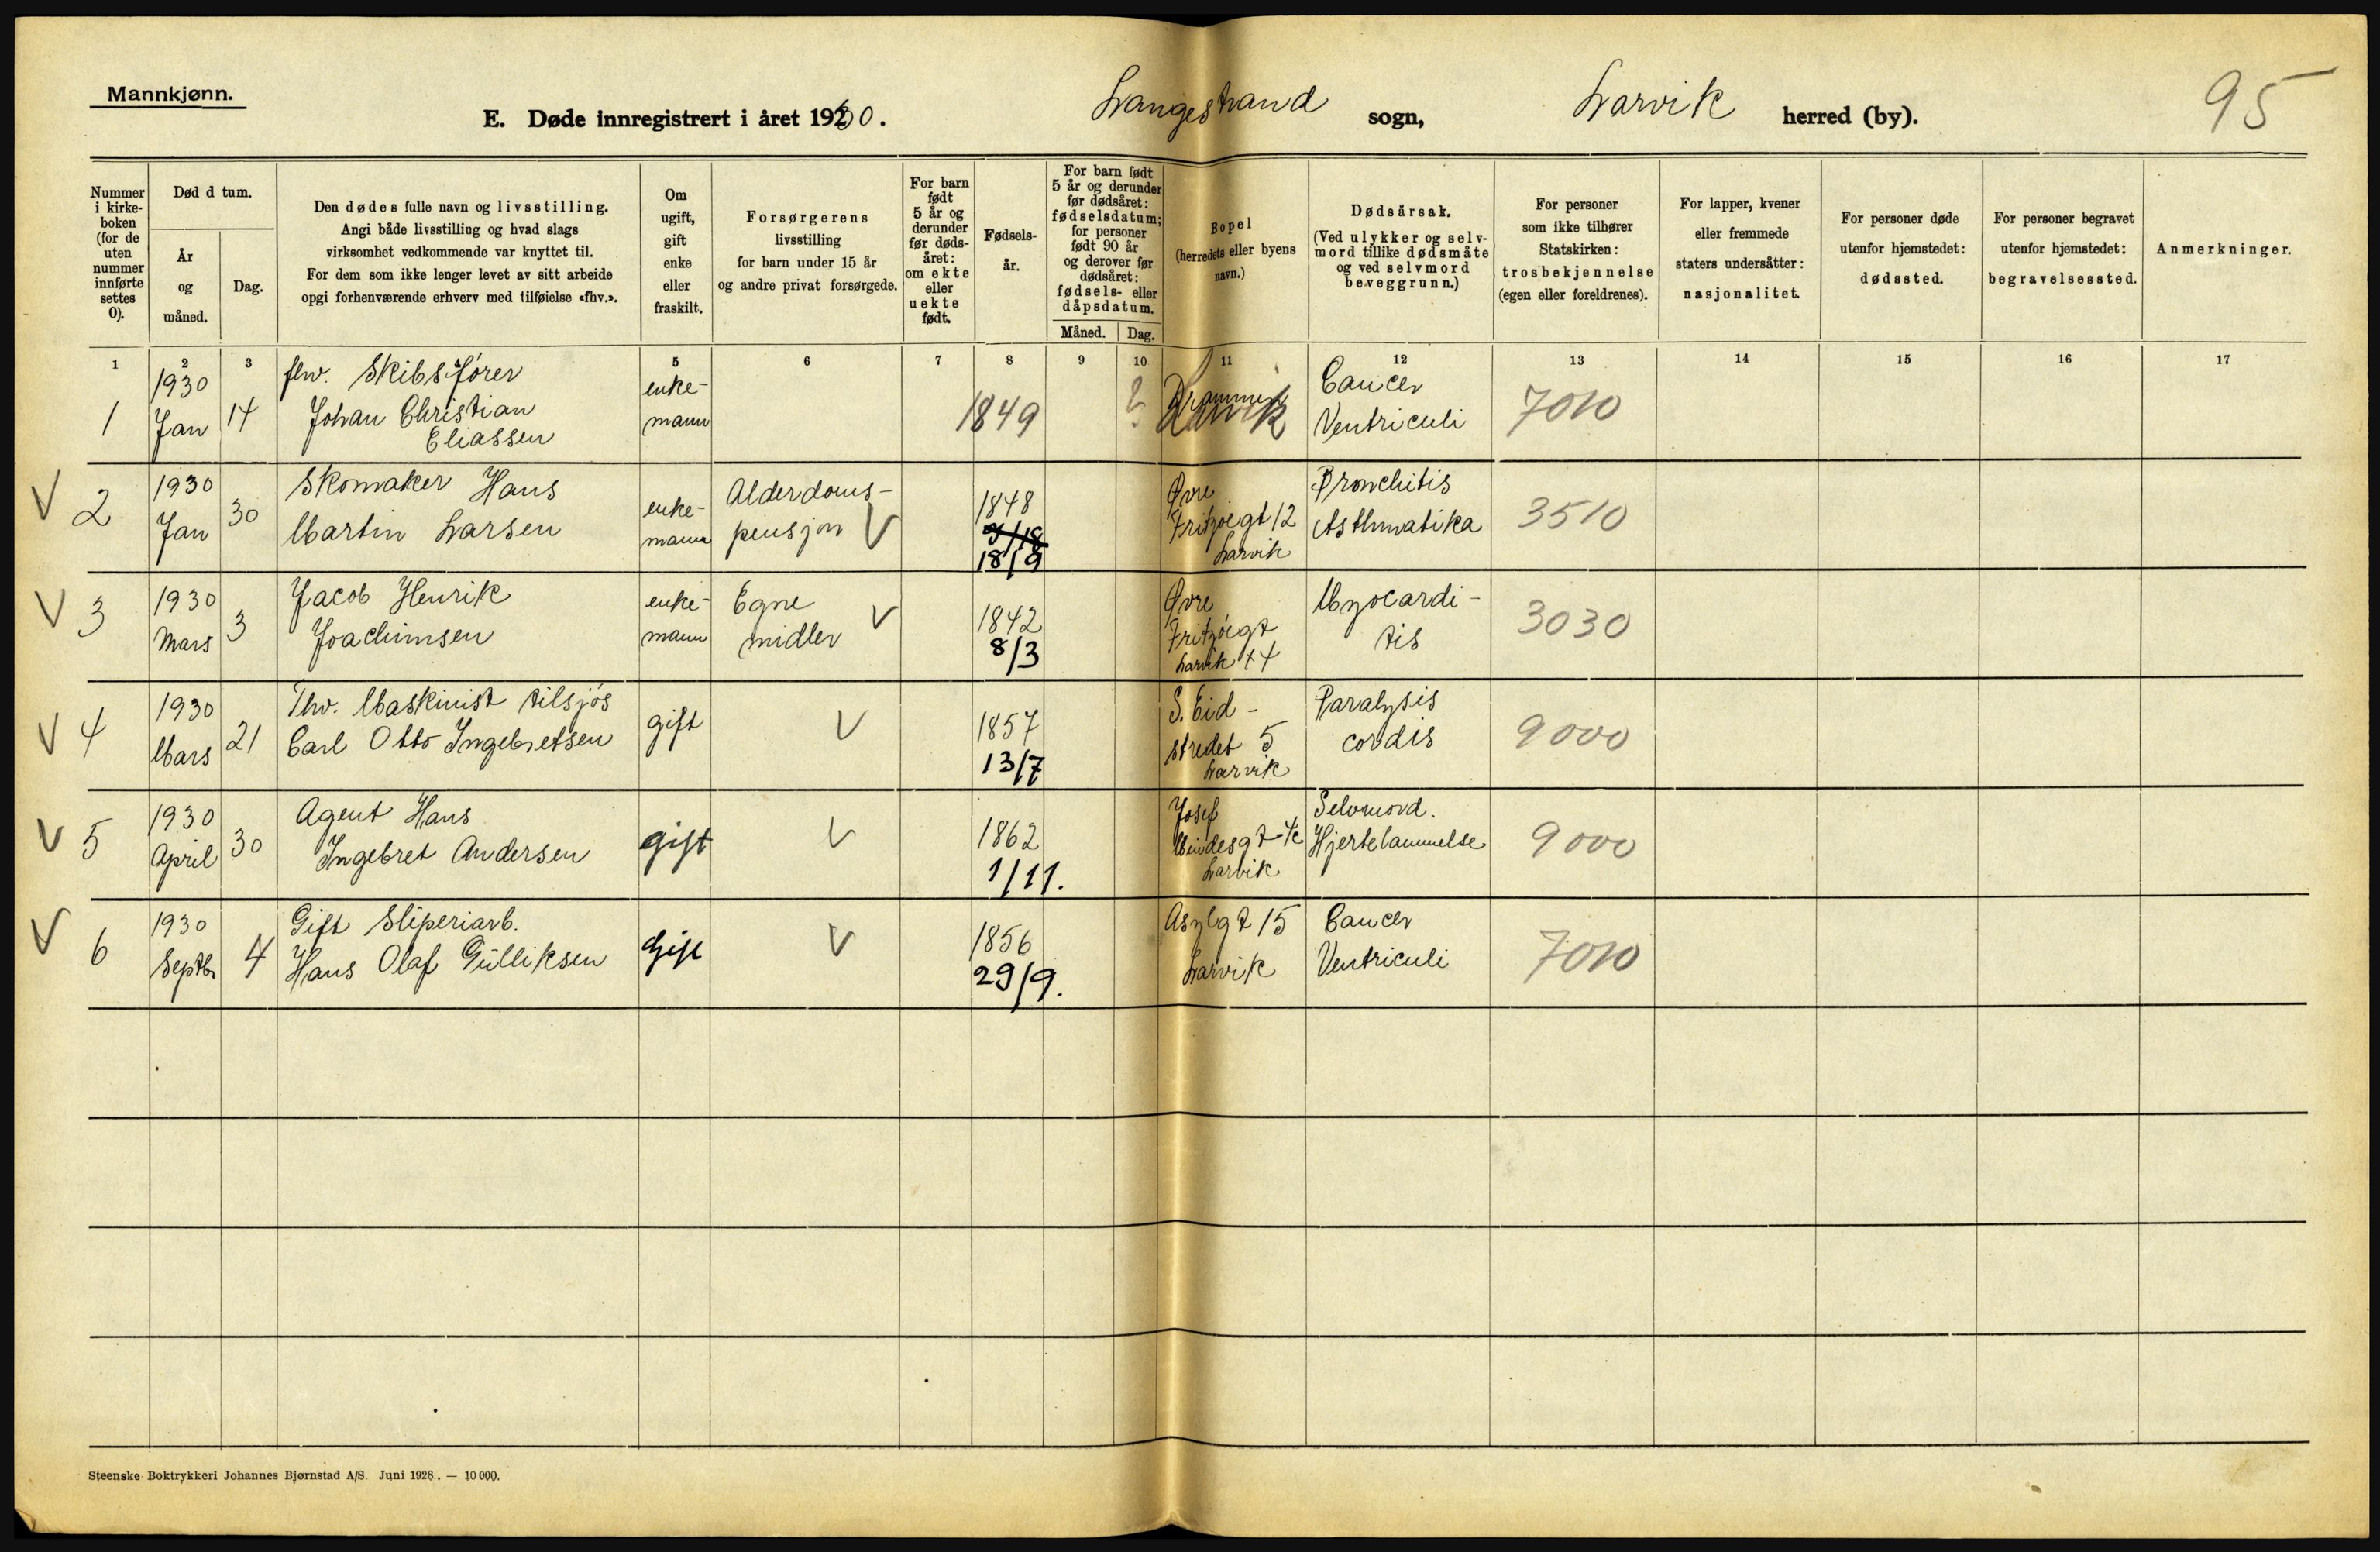 Mannkjønn.
E. Døde innregistrert i året 1930.
Langestrand sogn, Larvik herred (by).
95
Nummer i kirke-boken (for de uten nummer innførte settes 0).
Død d tum.
År og måned.
Dag.
Den dødes fulle navn og livsstilling.
Angi både livsstilling og hvad slags
virksomhet vedkommende var knyttet til.
For dem som ikke lenger levet av sitt arbeide
opgi forhenværende erhverv med tilføielse «fhv.».
Om ugift, gift enke eller fraskilt.
Forsørgerens
livsstilling
for barn under 15 år
og andre privat forsørgede.
For barn født 5 år og derunder før døds-året: om ekte eller uekte født.
Fødsels-år.
For barn født 5 år og derunder før dødsåret: fødselsdatum; for personer født 90 år og derover før dødsåret: fødsels- eller dåpsdatum.
Måned.
Dag.
Bopel
(herredets eller byens navn.)
Dødsårsak.
(Ved ulykker og selv-mord tillike dødsmåte og ved selvmord beveggrunn.)
For personer som ikke tilhører Statskirken: trosbekjennelse (egen eller foreldrenes).
For lapper, kvener eller fremmede staters undersåtter: nasjonalitet.
For personer døde utenfor hjemstedet: dødssted.
For personer begravet utenfor hjemstedet: begravelsessted.
Anmerkninger.
1 2 3 5 6 7 8 9 10 11 12 13 14 15 16 17
1 1930 Jan 14
fhv. Skibsfører
Johan Christian
Eliassen
enke-
mann
1849
?
Drammen
Larvik
Cancer
Ventriculi
7010
V 2 1930 Jan 30
Skomaker Hans
Martin Larsen
enke-
mann
Alderdoms-
pensjon V
1848
18/9
Øvre
Fritzøegt 12
Larvik
Bronchitis
Asthmatika
3510
V 3 1930 Mars 3
Jacob Henrik
Joachimsen
enke-
mann
Egne
midler V
1842
8/3
Øvre
Fritzøegt
Larvik 44
Myocardi-
tis
3030
V 4 1930 Mars 21
Fhv. Maskinist tilsjøs
Carl Otto Ingebretsen
gift
V
1857
13/7
S. Eid-
stredet 5
Larvik
Paralysis
cordis
9000
V 5 1930 April 30
Agent Hans
Ingebret Andersen
gift
V
1862
1/11.
Josef
Mindesgt
Larvik
Selvmord.
Hjertelammelse
9000
V 6 1930 Septbr 4
Gift Sliperiarb.
Hans Olaf Gulliksen
Gift
V
1856
29/9.
Asylgt 15
Larvik
Cancer
Ventriculi
7010
Steenske Boktrykkeri Johannes Bjørnstad A/S. Juni 1928. — 10 000.